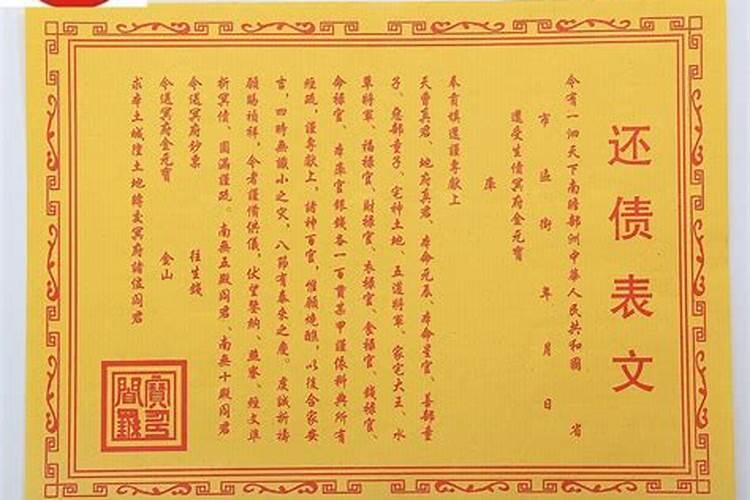 还债表文
今有一泗天下南瞻部洲中華人民共和國 省
市 區 街 年 月 日
還受生債冥府金元寶
庫
奉育填還謹專献上
天曹真君、地府真君、本命元辰、本命星官、善部童
子、惡部童子、宅神土地、五道將軍、家宅大王、水
草將軍、福禄官、財禄官、衣禄官、食禄官、錢禄官、
命禄官、本庫官銀錢各一百貫某甲謹依科典所有
經疏，謹專献上，諸神百官，惟願燒醮，以後合家安
吉，四時無讖小之灾，八節有泰來之慶。虔誠祈禱
願賜禎祥，今者謹備供儀，伏望鑒納、 經文準
折冥債、圓滿謹疏。南無五殿阎君、南無十殿阎君
令送冥府鈔票 往生錢
令送冥府金元寶 金山
求本土城隍土地轉交冥府諸位阎君